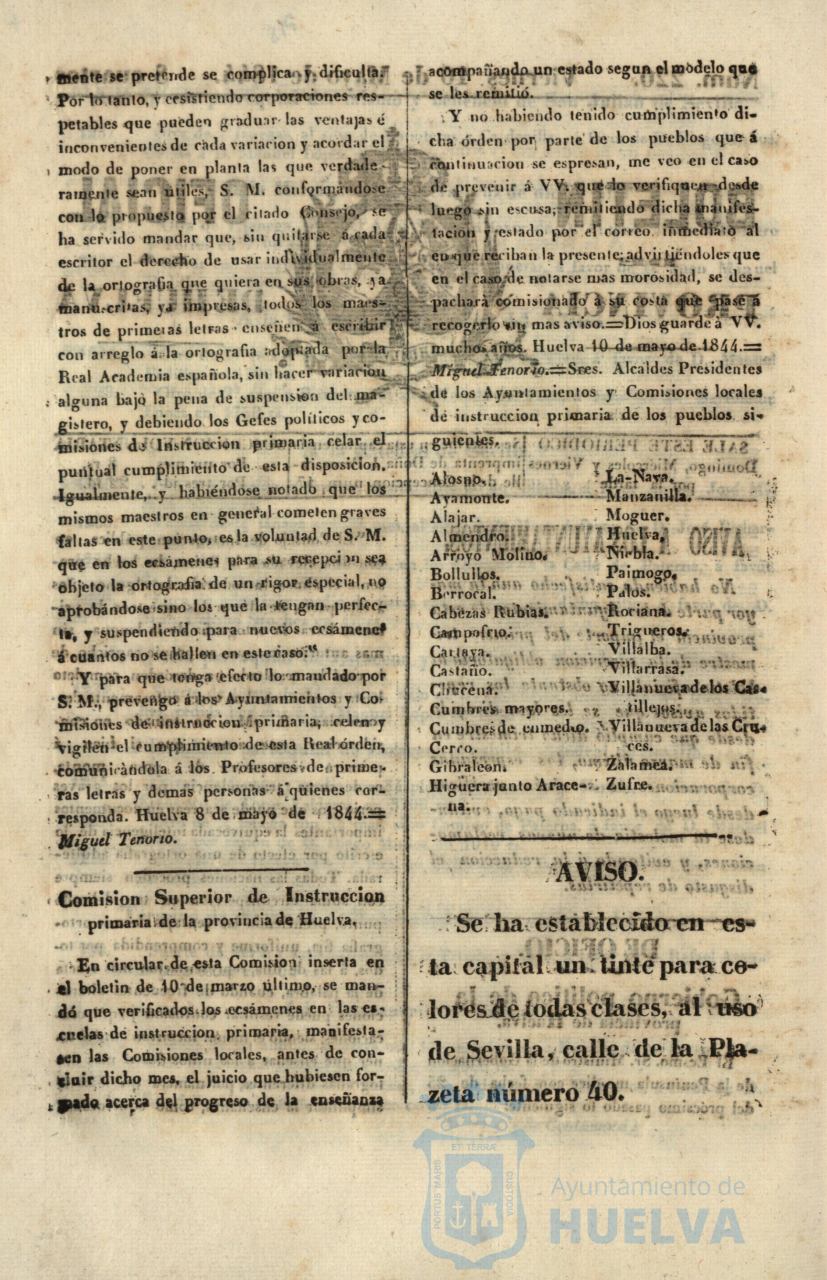 mente se pretende se complica y dificulta.
Por lo tanto, y ecsistiendo corporaciones res-
petables que pueden graduar las ventajas é
inconvenientes de cada variacion y acordar el
modo de poner en planta las que verdade-
ramente sean útiles, S. M. conformándose
con lo propuesto por el citado Consejo, se
ha servido mandar que, sin quitarse á cada
escritor el derecho de usar individualmente
de la ortografía que quiera en sus obras, ya
manuscritas, ya impresas, todos los maes-
tros de primeras letras enseñen á escribir
con arreglo á la ortografia adoptada por la
Real Academia española, sin hacer variacion
alguna bajo la pena de suspension del ma-
gistero, y debiendo los Gefes políticos y co-
misiones de Instruccion primaria celar el
puntual cumplimiento de esta disposicion.
Igualmente, y habiéndose notado que los
mismos maestros en general cometen graves
faltas en este punto, es la voluntad de S. M.
que en los ecsámenes para su recepcion sea
objeto la ortografía de un rigor especial, no
aprobándose sino los que la tengan perfec-
ta, y suspendiendo para nuevos ecsámenes
á cuantos no se hallen en este caso."
Y para que tenga efecto lo mandado por
S. M., prevengo á los Ayuntamientos y Co-
misiones de instruccion primaria, celen y
vigilen el cumplimiento de esta Real órden,
comunicàndola á los Profesores de prime-
ras letras y demas personas á quienes cor-
responda. Huelva 8 de mayo de 1844.=
Miguel Tenorio.
Comision Superior de Instruccion
primaria de la provincia de Huelva.
En circular de esta Comision inserta en
el boletin de 10 de marzo último, se man-
dó que verificados los ecsámenes en las es-
cuelas de instruccion primaria, manifesta-
sen las Comisiones locales, antes de con-
cluir dicho mes, el juicio que hubiesen for-
mado acerca del progreso de la enseñanza
acompañando un estado segun el modelo que
se les remitió.
Y no habiendo tenido cumplimiento di-
cha órden por parte de los pueblos que á
continuacion se espresan, me veo en el caso
de prevenir á VV. que lo verifiquen desde
luego sin escusa, remitiendo dicha manifes-
tacion y estado por el correo inmediato al
en que reciban la presente; advirtiéndoles que
en el caso de notarse mas morosidad, se des-
pachará comisionado à su costa que pase á
recogerlo sin mas aviso.=Dios guarde à VV.
muchos años. Huelva 10 de mayo de 1844.=
Miguel Tenorio.=Sres. Alcaldes Presidentes
de los Ayuntamientos y Comisiones locales
de instruccion primaria de los pueblos si-
guientes.
Alosno. La-Nava.
Ayamonte. Manzanilla.
Alajar. Moguer.
Almendro. Huelva.
Arroyo Molino. Niebla.
Bollullos. Paimogo.
Berrocal. Palos.
Cabezas Rubias. Rociana.
Campofrio. Trigueros.
Cartaya. Villalba.
Castaño. Villarrasa.
Chucena. Villanueva de los Cas-
Cumbres mayores. tillejos.
Cumbres de enmedio. Villanueva de las Cru-
Cerro. ces.
Gibraleon. Zalamea.
Higuera junto Arace- Zufre.
na.
AVISO.
Se ha establecido en es-
ta capital un tinte para co-
lores de todas clases, al uso
de Sevilla, calle de la Pla-
zeta número 40.
ET TERRÆ
PORTUS MARIS
CUSTODIA
Ayuntamiento de
HUELVA